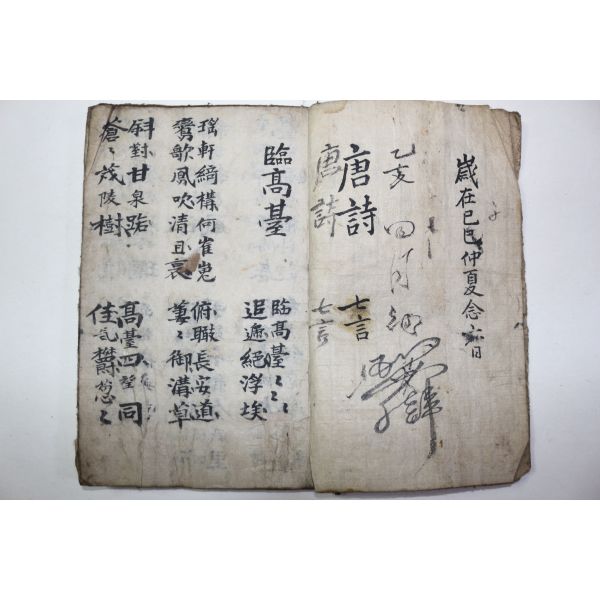 歲在己巳仲夏念六日
乙亥 四月
唐詩 七言
唐詩 七言
臨高臺
臨高臺〻〻〻
追遞絕浮埃
瑤軒綺構何崔嵬
鸞歌鳳吹清且哀
俯職長安道
萋〻御溝草
斜對甘泉路
蒼〻茂陵樹
高臺四望同
佳氣鬱葱〻